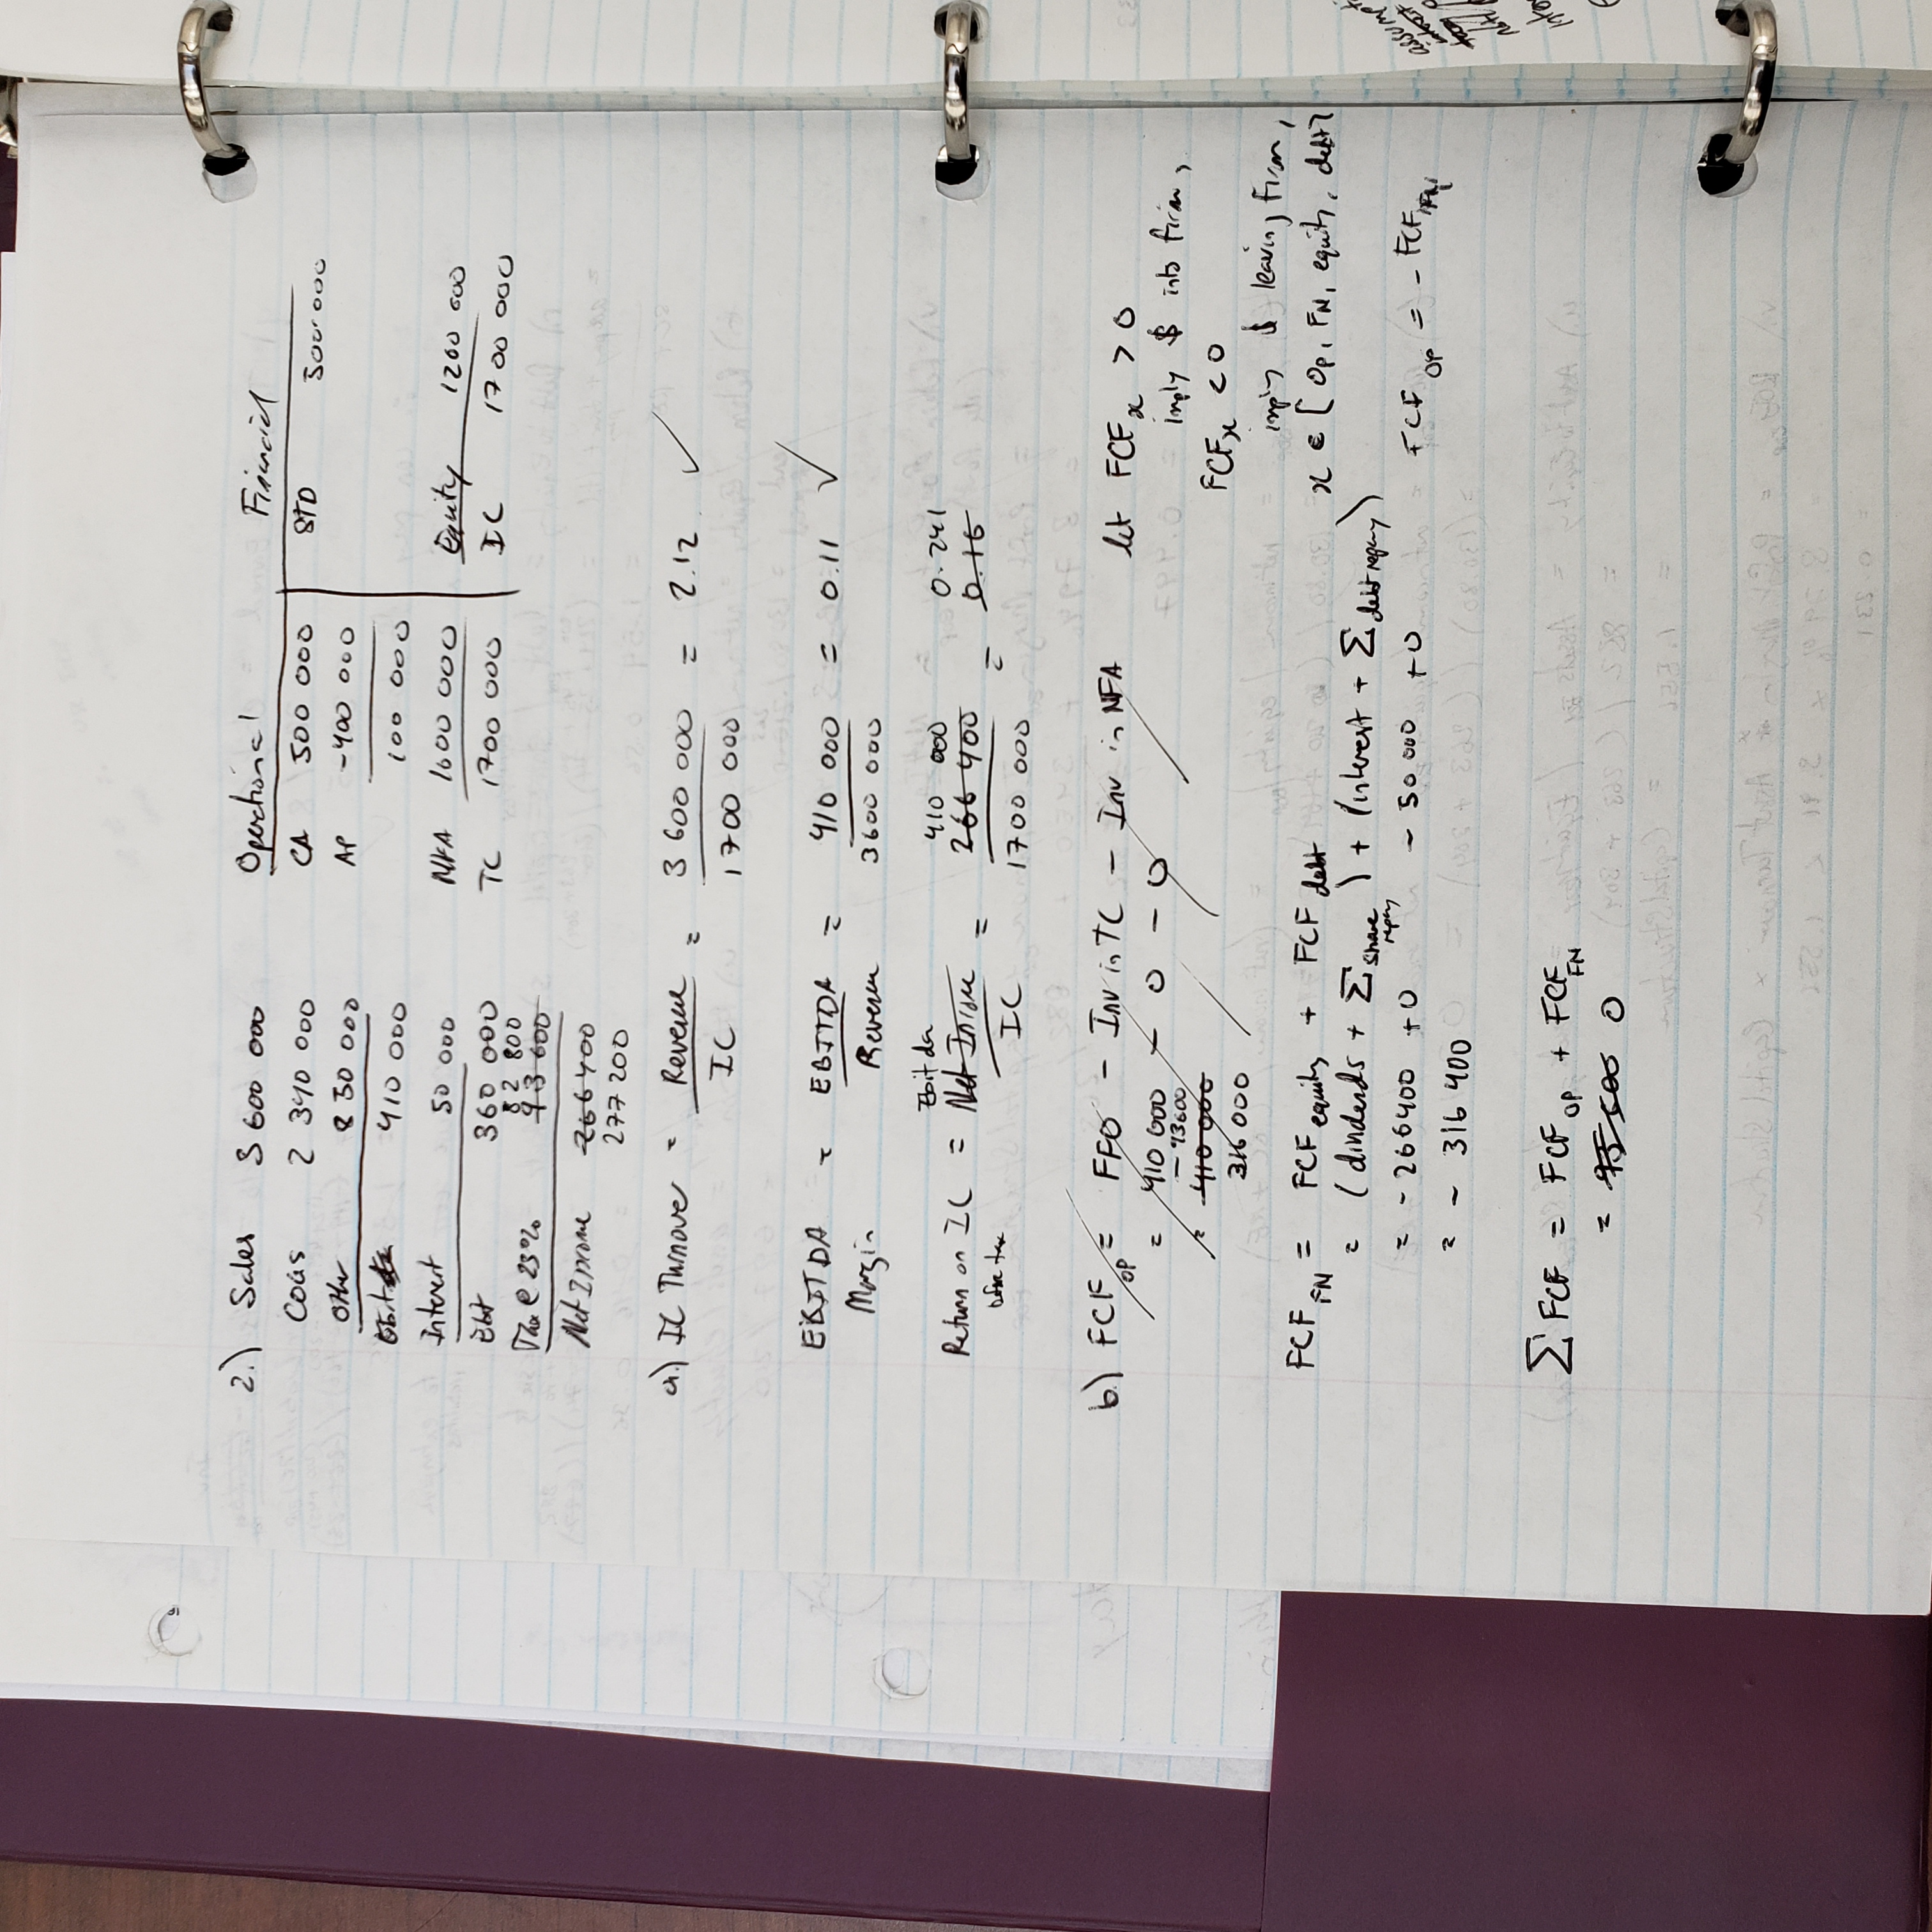 2.) Sales 3 600 000
COGS 2 340 000
Other 850 000
Ebit 410 000
Interest 50 000
Ebt 360 000
82 800
Tax @ 23% 93 600
Net Income 266 400
277 200
Operational Financial
CA 500 000 STD 500 000
AP -400 000
100 000
NFA 1600 000 Equity 1200 000
TC 1700 000 IC 1700 000
a.) IC Turnover = Revenue / IC = 3 600 000 / 1700 000 = 2.12 ✓
EBITDA Margin = EBITDA / Revenue = 410 000 / 3600 000 = 0.11 ✓
Ebitda 410 000 0.241
Return on IC = Net Income / IC = 266 400 / 1700 000 = 0.16
before tax
b.) FCF OP = FFO - Inv in TC - Inv in NFA
= 410 000 - 0 - 0
- 93600
= 410 000
316 000
let FCF x > 0
imply $ into firm,
FCF x < 0
imply $ leaving firm,
x ∈ [ Op, FN, equity, debt]
FCF FN = FCF equity + FCF debt
= (dividends + Σ share repay) + (interest + Σ debt repay)
= - 266400 + 0 - 50 000 + 0 FCF OP = - FCF FN
= - 316 400
Σ FCF = FCF OP + FCF FN
= 0